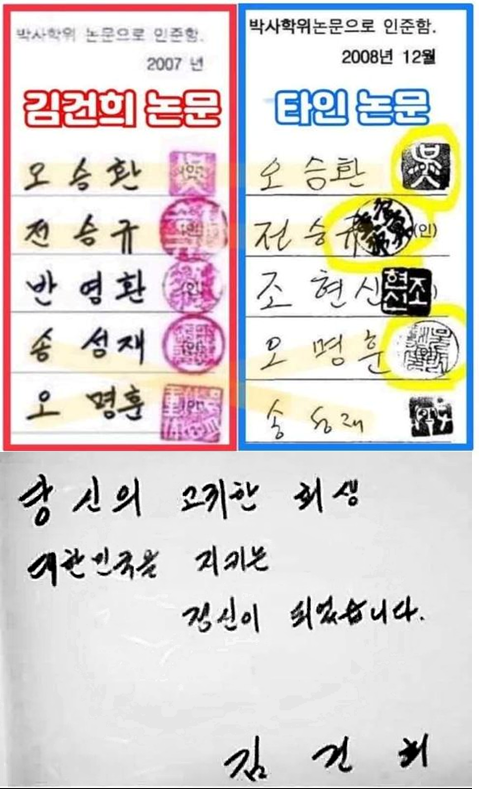 박사학위 논문으로 인준함.
2007 년
김건희 논문
오 승 환
전 승 규
반 영 환
송 성 재
오 명 훈
박사학위논문으로 인준함.
2008년 12월
타인 논문
오 승 환
전 승 규 (인)
조 현 신
오 명 훈
송 성 재
당신의 고귀한 희생
대한민국을 지키는
정신이 되었습니다.
김 건 희